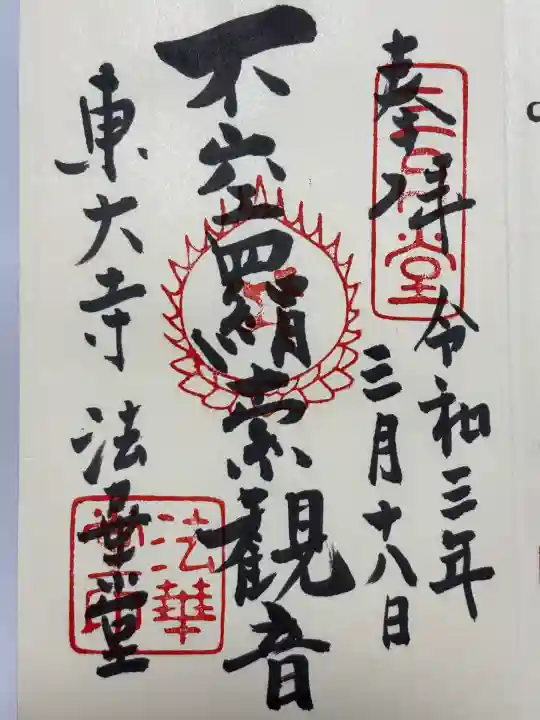 奉拝
三月堂
令和三年
三月十八日
不空羂索観音
東大寺 法華堂
法華